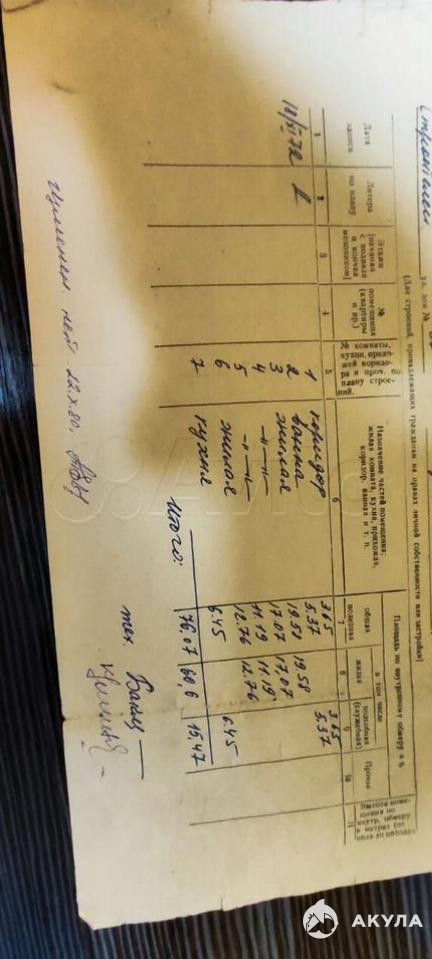 Строителей ул. дом №
(Для строений, принадлежащих гражданам на правах личной собственности или застройки)
Дата записи
Литера по плану
Этажи (начиная с подвала и кончая мезонином)
№ помещения (квартиры и пр.)
№ комнаты, кухни, прихожей коридора и проч. по плану строений.
Назначение частей помещения: жилая комната, кухня, прихожая, коридор, ванная и т. п.
Площадь по внутреннему обмеру в м
общая полезная
в том числе
жилая
подсобная (служебная)
Прочая
Высота помещения по внутр. обмеру в метрах (от пола до потолка)
1 2 3 4 5 6 7 8 9 10 11
18/XI 72 А 1 коридор 3.65 3.65
2 ванна 5.37 5.37
3 жилая 19.58 19.58
4 -"- 17.07 17.07
5 -"- 11.19 11.19
6 жилая 12.76 12.76
7 кухня 6.45 6.45
Итого: 76.07 60,6 15.47
Изменен. нет 22.X.80.
тех.
АКУЛА